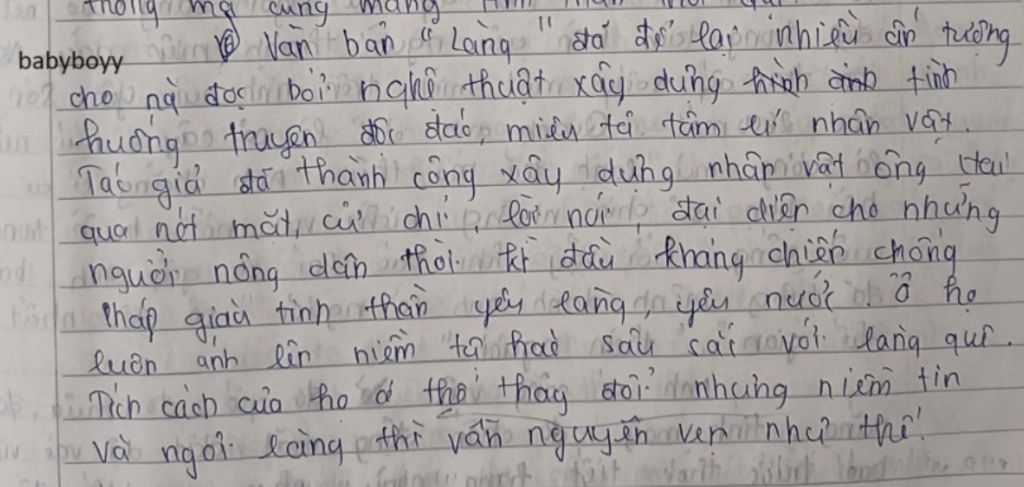 cũng mang
Văn bản "Làng" đã để lại nhiều ấn tượng
babyboyy
cho ng đọc bởi nghệ thuật xây dựng hình ảnh tình
huống truyện độc đáo, miêu tả tâm lí nhân vật.
Tác giả đã thành công xây dựng nhân vật ông Hai
qua nét mặt, cử chỉ, lời nói, đại diện cho những
người nông dân thời kì đầu kháng chiến chống
Pháp giàu tinh thần yêu làng, yêu nước. Ở họ
luôn ánh lên niềm tự hào sâu sắc với làng quê.
Tích cách của họ có thể thay đổi nhưng niềm tin
về ngôi làng thì vẫn nguyên vẹn như thế.